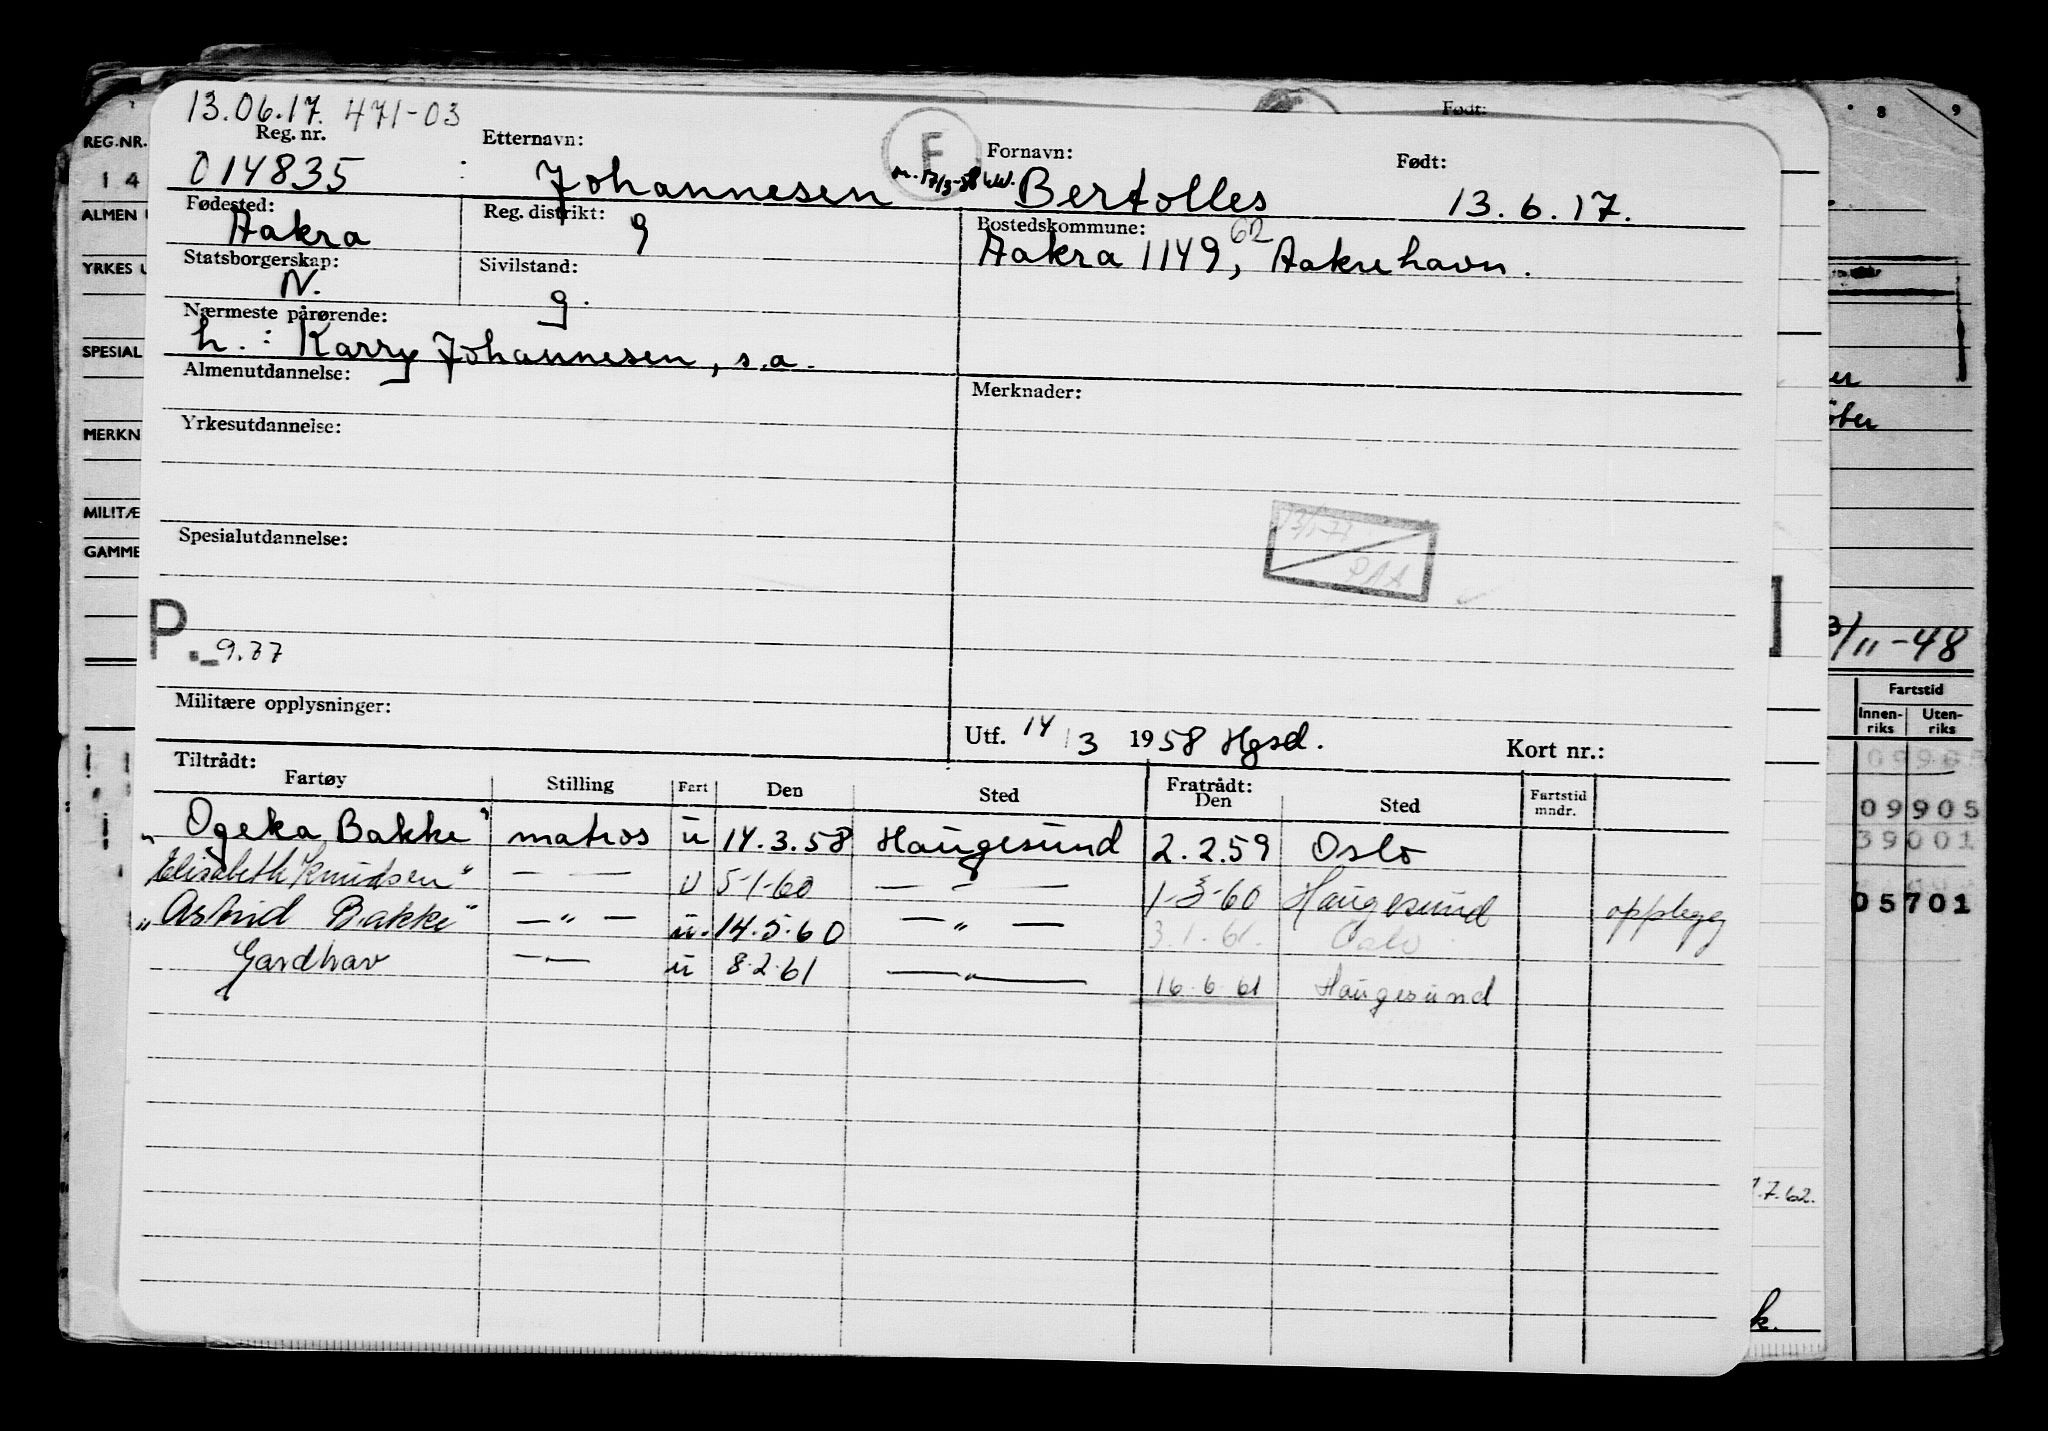 13.06.17. 471-03
Reg. nr. Etternavn: F Fornavn: Født:
014835 Johannesen Bertolles 13.6.17.
Fødested: Reg. distrikt: Bostedskommune:
Aakra 9 Aakra 1149, 62 Aakrehavn.
Statsborgerskap: Sivilstand:
N. g.
Nærmeste pårørende:
h. : Karry Johannesen, s.a.
Almenutdannelse: Merknader:
Yrkesutdannelse:
Spesialutdannelse:
PAA
P.- 9.77
Militære opplysninger:
Utf. 14/3 1958 Hgsd. Kort nr.:
Tiltrådt: Fratrådt:
Fartøy Stilling Fart Den Sted Den Sted Fartstid mndr.
"Ogeka Bakke" matros u 14.3.58 Haugesund 2.2.59 Oslo
Elisabeth Knudsen" — — u 5-1-60 — - — 1-3-60 Haugesund opplegg
"Astrid Bakke" —"— u. 14.5.60 — " — 3.1.61. Oslo
Gardhav —— u 8.2.61 —"— 16.6.61 Haugesund
REG.NR.
1 4
ALMEN U
YRKES U
SPESIAL
MERKN
MILITÆ
GAMME
Født:
8 9
3/11-48
Fartstid
Innen-riks Uten-riks
09905
09905
39001
05701
7.62.
k.